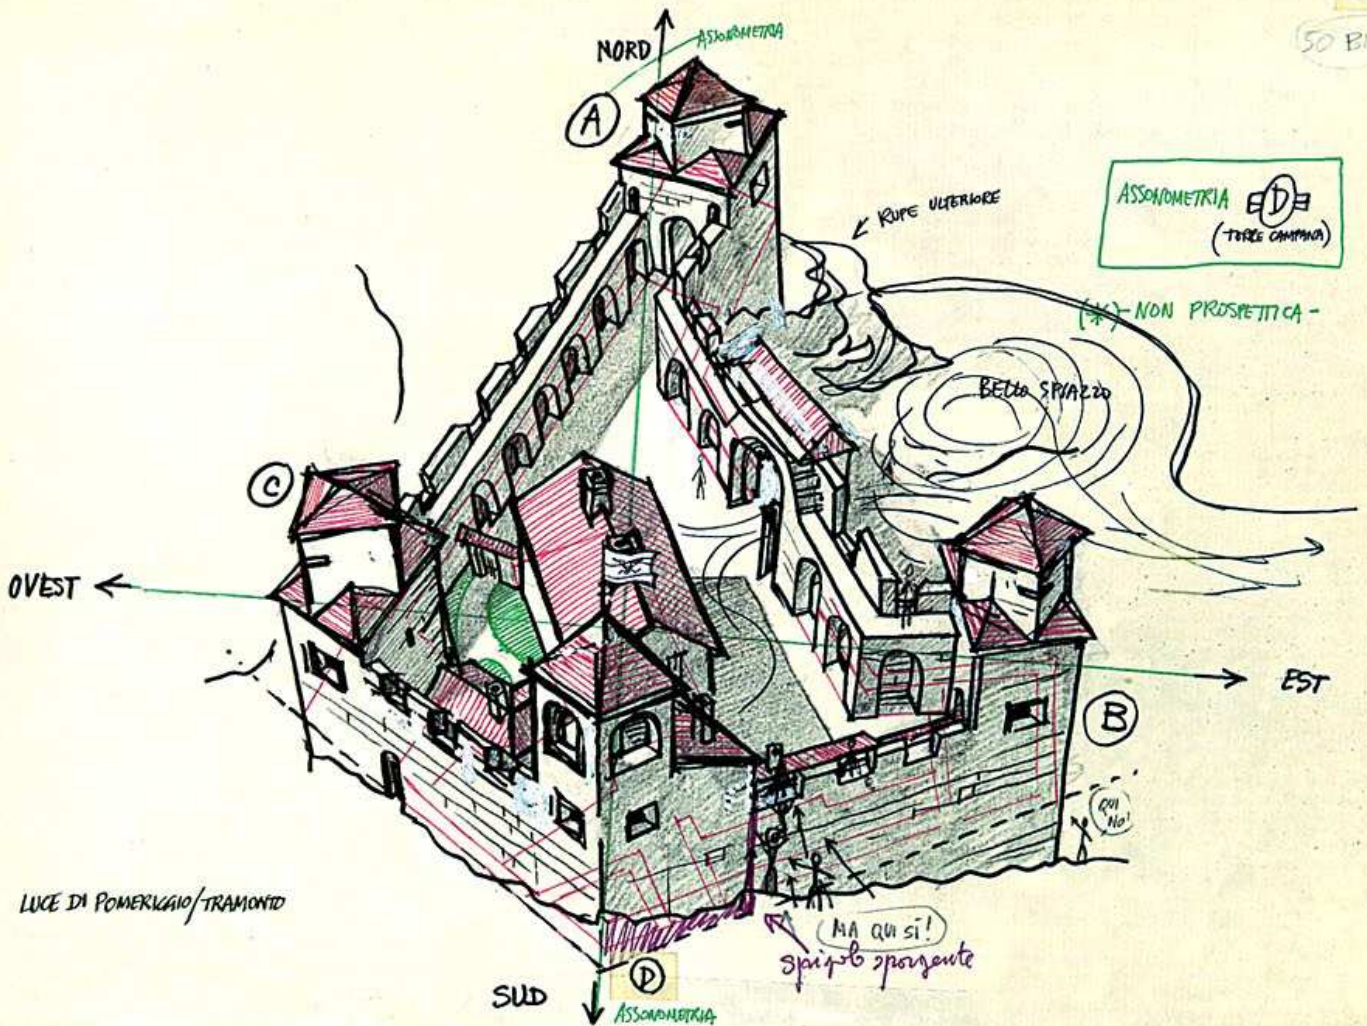 NORD
ASSONOMETRIA
50 B
A
RUPE ULTERIORE
ASSONOMETRIA D
(TORRE CAMPANA)
(*)-NON PROSPETTICA-
BELLO SPIAZZO
C
OVEST
EST
B
QUI
NO!
LUCE DI POMERIGGIO/TRAMONTO
MA QUI SÌ!
spigolo sporgente
D
SUD
ASSONOMETRIA